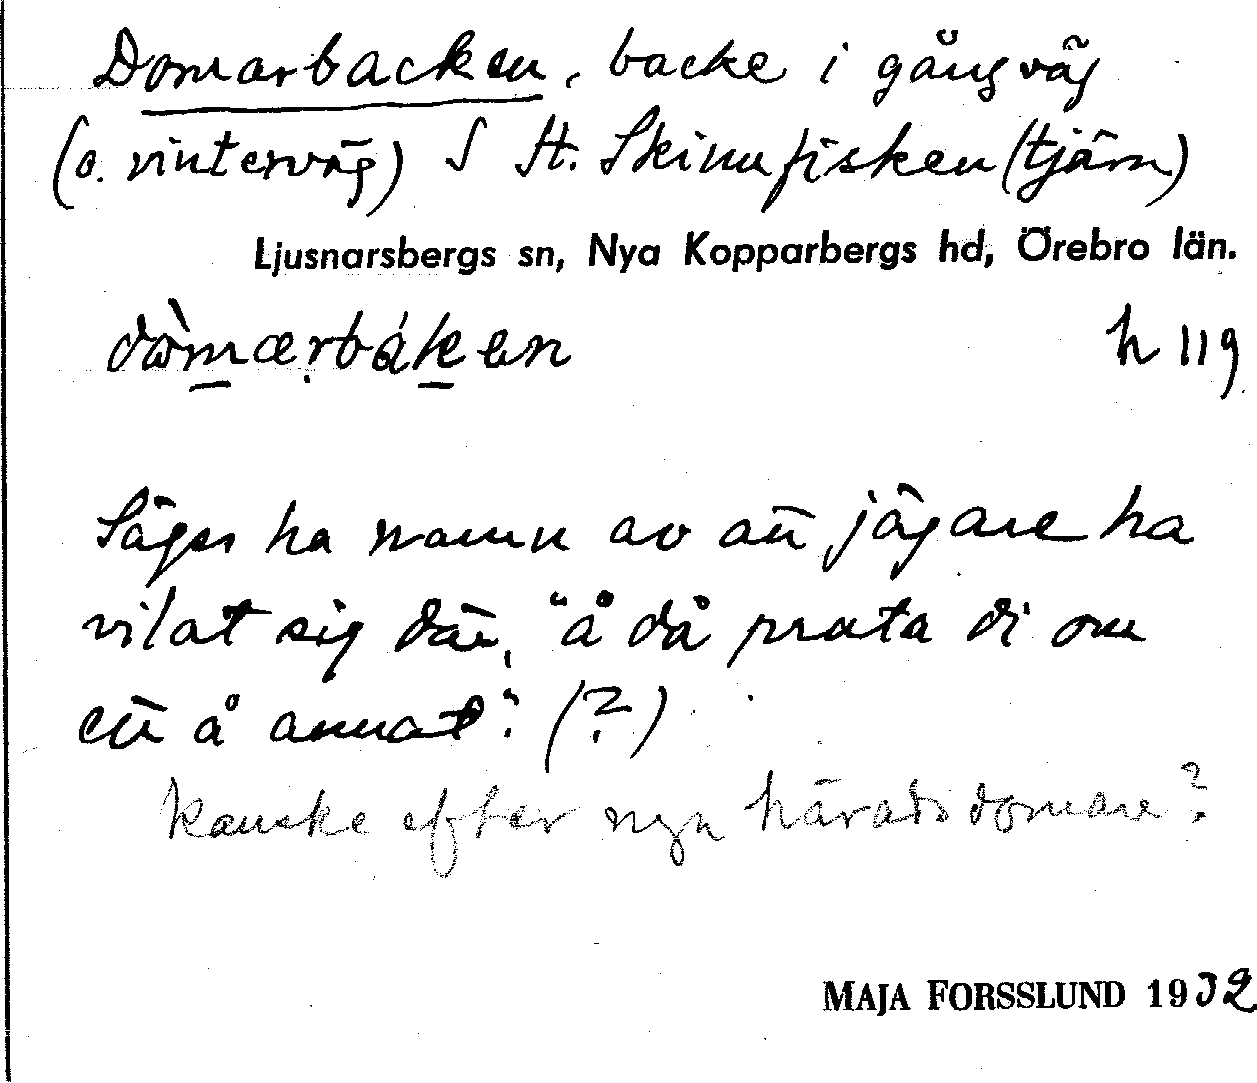 Domarbacken, backe i gångväg
(o. vinterväg) S St. Skinnfisken (tjärn)
Ljusnarsbergs sn, Nya Kopparbergs hd, Örebro län.
dòmærbáken h 119
Säges ha namn av att jägare ha
vilat sig där, "å då prata di om
ett å annat". (?)
Kanske efter ngn häradsdomare?
MAJA FORSSLUND 1932